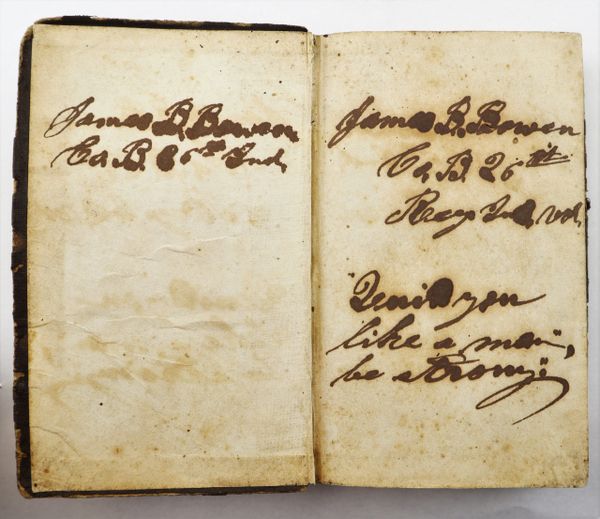 James B. Bowen
Co. B. 26th Ind.
James B. Bowen
Co. B. 26th
Regt Ind. Vol.
"Quit you
like a man",
be strong"